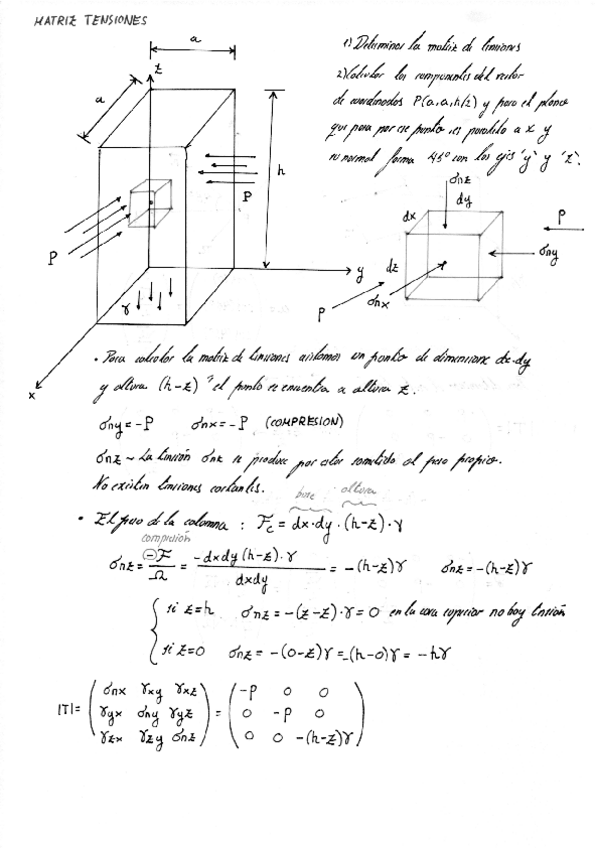 MATRIZ TENSIONES
1) Determinar la matriz de tensiones
2) Calcular las componentes del vector
de coordenadas P(a,a,h/2) y para el plano
que pasa por ese punto, es paralelo a x y
su normal forma 45º con los ejes "y" y "z".
a
z
a
h
P
P
γ
y
x
σnz
dy
dx
P
σny
dz
σnx
P
• Para calcular la matriz de tensiones aislamos un punto de dimensione dx·dy
y altura (h-z) el punto se encuentra a altura z.
σny=-P σnx=-P (COMPRESION)
σnz ~ La tensión σnz se produce por estar sometido al peso propio.
No existen tensiones cortantes.
base altura
• El peso de la columna : Fc = dx·dy·(h-z)·γ
compresión
σnz= -F/Ω = -dxdy(h-z)·γ/dxdy = -(h-z)γ σnz=-(h-z)γ
si z=h σnz=-(z-z)·γ=0 en la cara superior no hay tensión
si z=0 σnz=-(0-z)γ=-(h-0)γ=-hγ
|T|= (σnx γxy γxz) = (-P 0 0)
(γyx σny γyz) (0 -P 0)
(γzx γzy σnz) (0 0 -(h-z)γ)